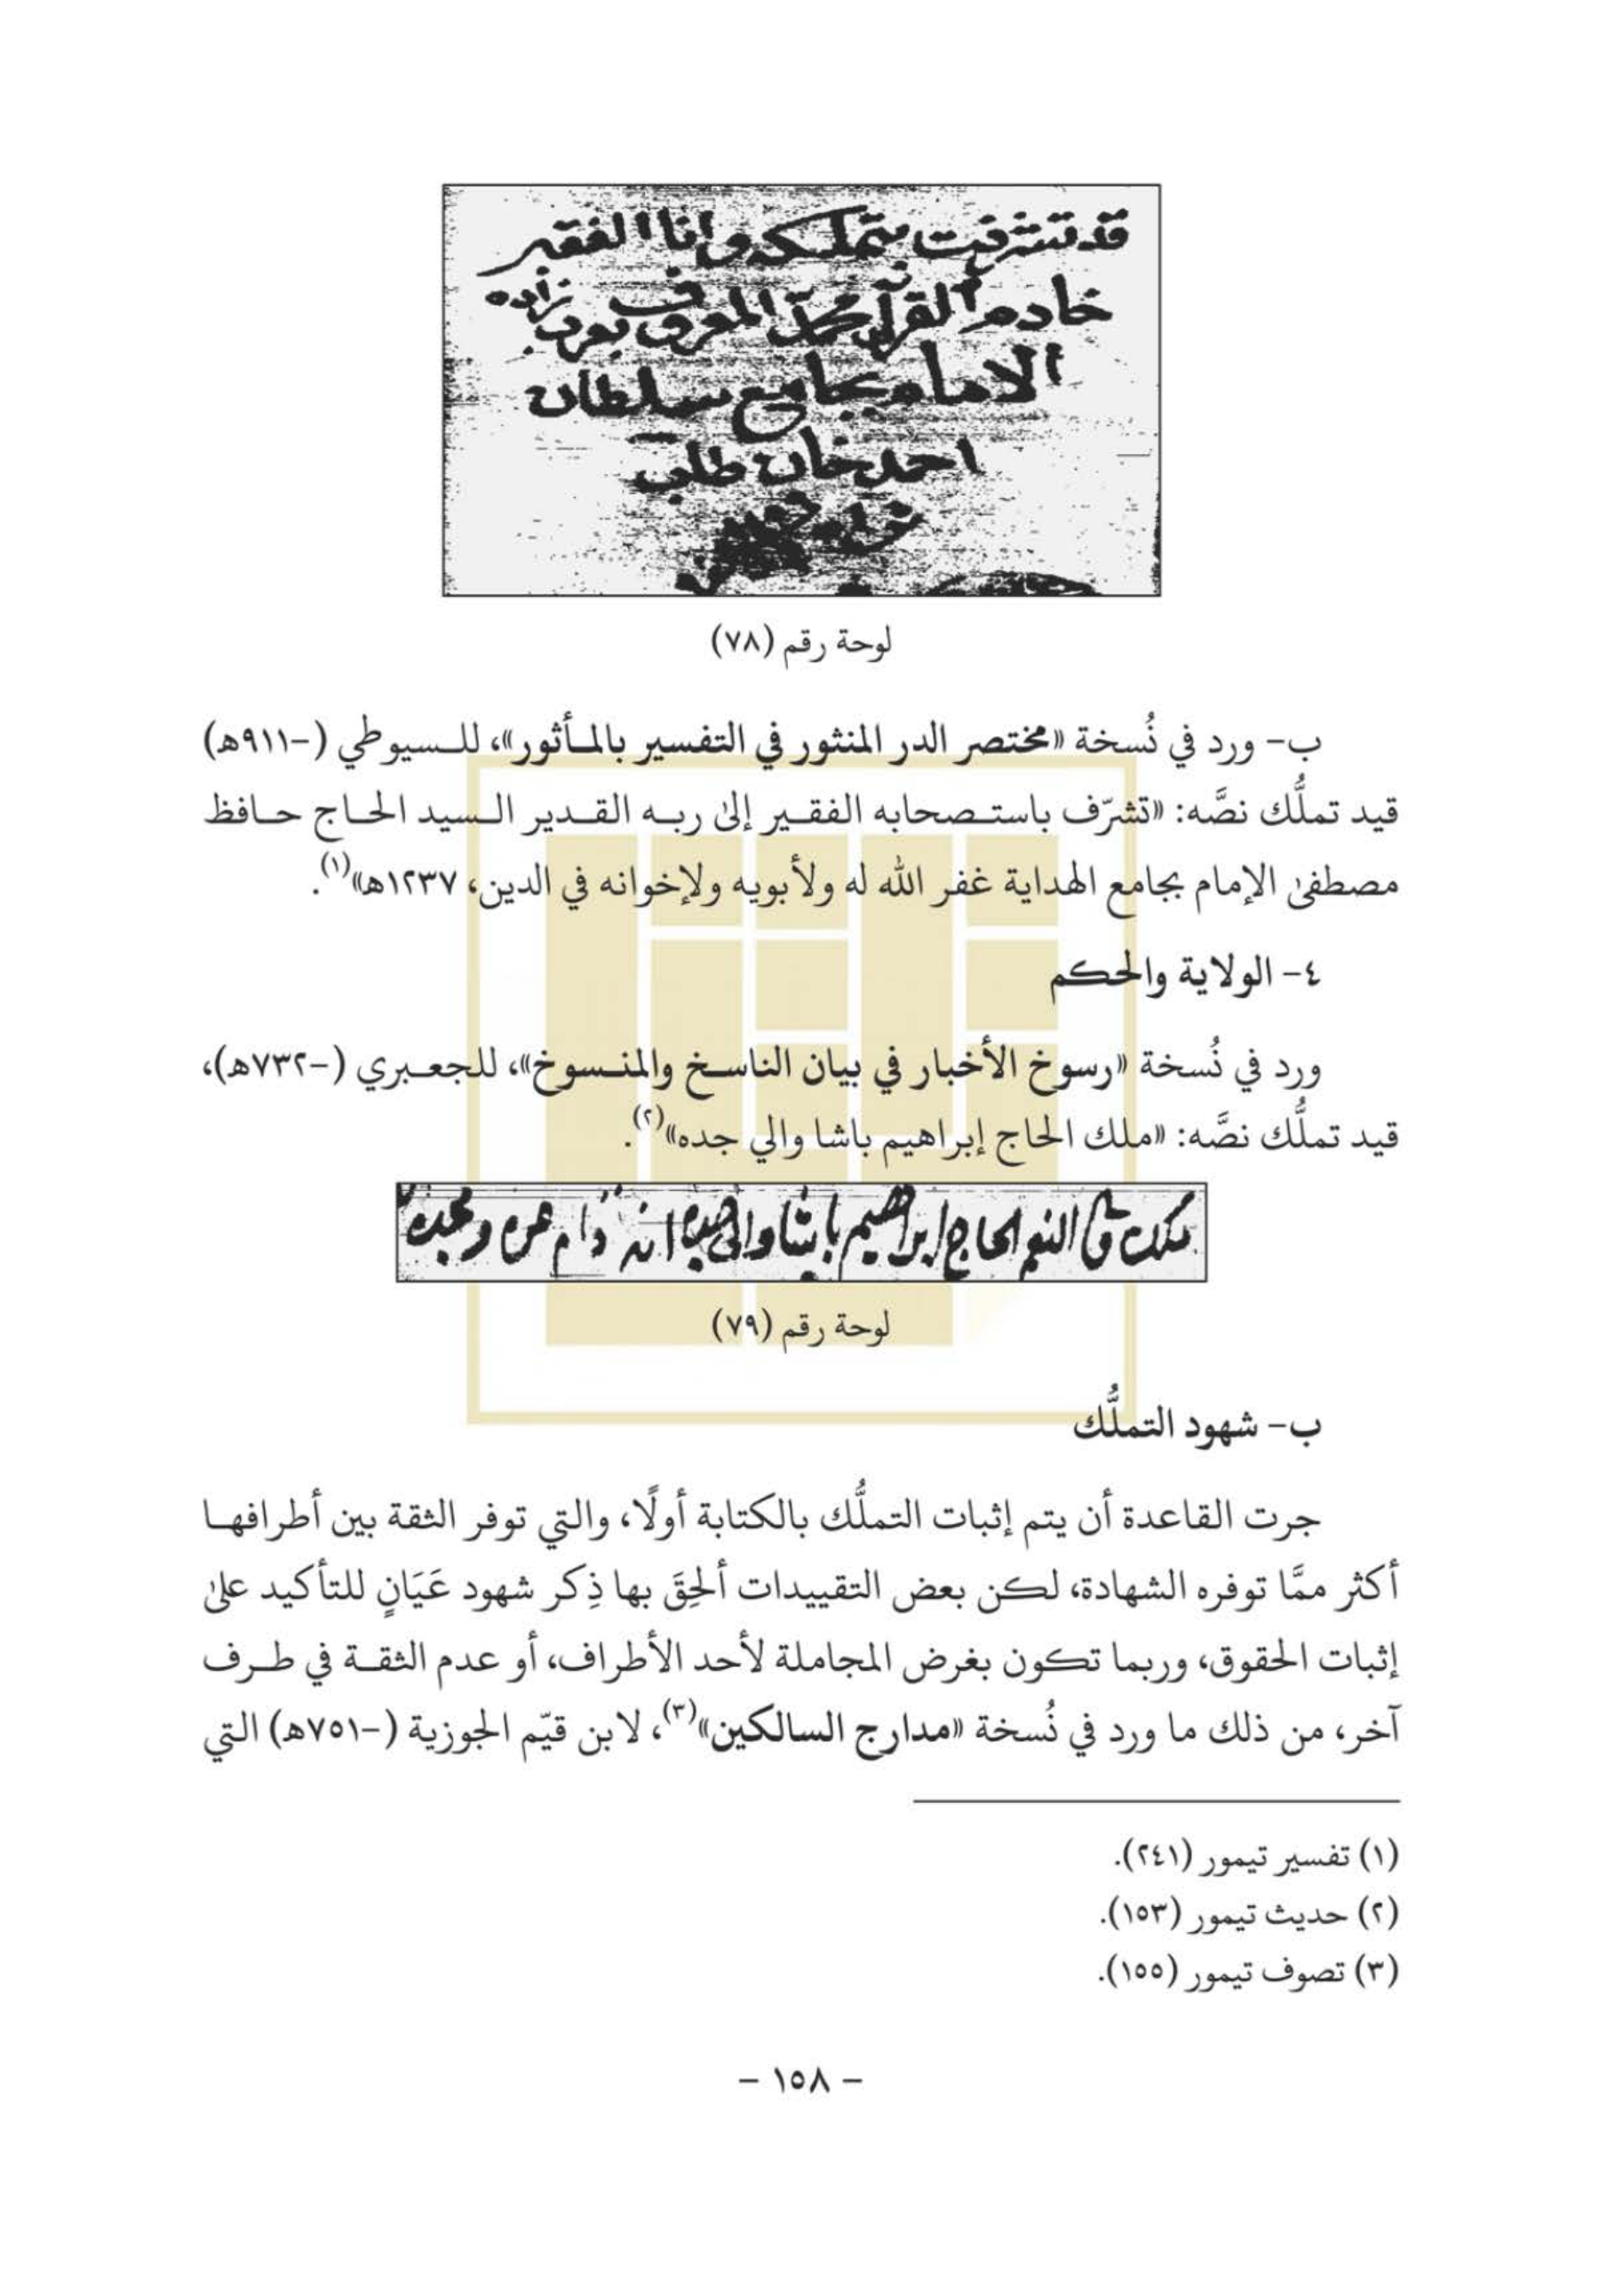 قد تشرفت بتملكه وانا الفقير
خادم القرآن محمد المعروف بعرب زاده
الامام بجامع سلطان
احمد خان طلب
لوحة رقم (٧٨)
ب- ورد في نُسخة «مختصر الدر المنثور في التفسير بالمأثور»، للسيوطي (-٩١١هـ)
قيد تملُّك نصَّه: «تشرّف باستصحابه الفقير إلى ربه القدير السيد الحاج حافظ
مصطفىٰ الإمام بجامع الهداية غفر الله له ولأبويه ولإخوانه في الدين، ١٢٣٧هـ»(١).
٤- الولاية والحكم
ورد في نُسخة «رسوخ الأخبار في بيان الناسخ والمنسوخ»، للجعبري (-٧٣٢هـ)،
قيد تملُّك نصَّه: «ملك الحاج إبراهيم باشا والي جده»(٢).
ملك الحاج ابراهيم باشا والي جده دام
لوحة رقم (٧٩)
ب- شهود التملُّك
جرت القاعدة أن يتم إثبات التملُّك بالكتابة أولًا، والتي توفر الثقة بين أطرافها
أكثر ممَّا توفره الشهادة، لكن بعض التقييدات ألحِقَ بها ذِكر شهود عَيَانٍ للتأكيد علىٰ
إثبات الحقوق، وربما تكون بغرض المجاملة لأحد الأطراف، أو عدم الثقة في طرف
آخر، من ذلك ما ورد في نُسخة «مدارج السالكين»(٣)، لابن قيّم الجوزية (-٧٥١هـ) التي
(١) تفسير تيمور (٢٤١).
(٢) حديث تيمور (١٥٣).
(٣) تصوف تيمور (١٥٥).
- ١٥٨ -